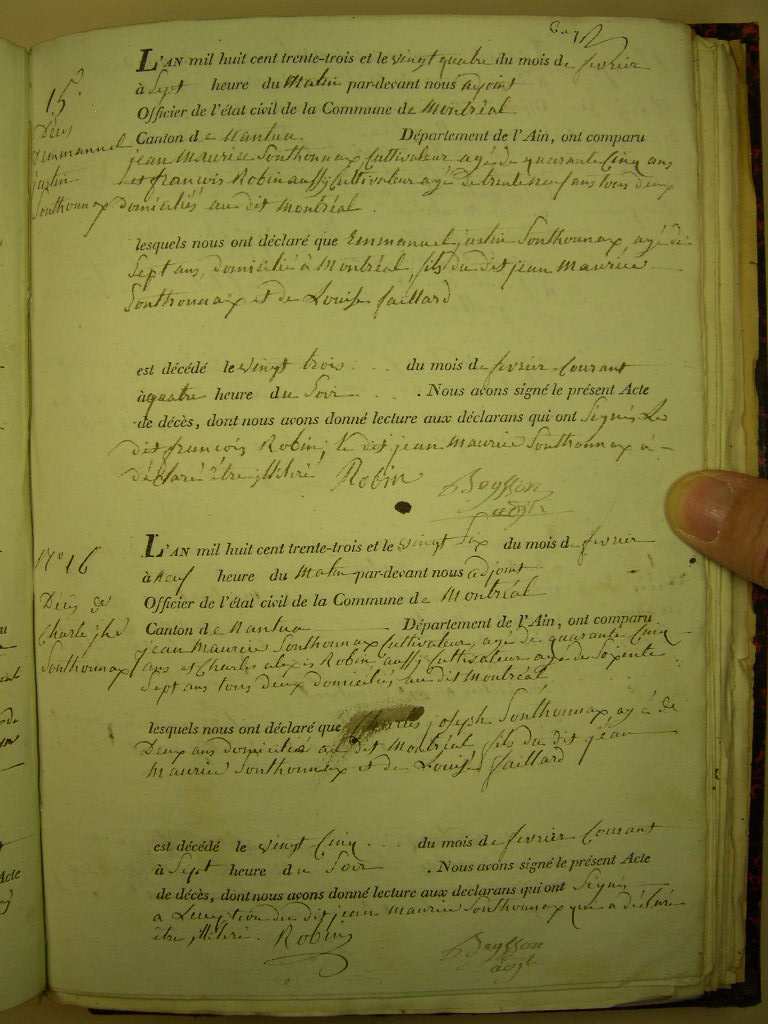 15
L'AN mil huit cent trente-trois et le vingt quatre du mois de fevrier
à Sept heure du Matin par-devant nous adjoint
Officier de l'état civil de la Commune de Montréal
Décès
Canton de Nantua Département de l'Ain, ont comparu
D'emmanuel
jean Maurice Sonthonnax Cultivateur agé de quarante Cinq ans
justin
et françois Robin aussy Cultivateur agé de trente neuf ans tous deux
Sonthonnax
domiciliés au dit Montréal.
lesquels nous ont déclaré que Emmanuel justin Sonthonnax, agé de
Sept ans, domicilié à Montréal, fils du dit jean Maurice
Sonthonnax et de Louise faillard
est décédé le vingt trois du mois de fevrier Courant
à quatre heure du Soir. Nous avons signé le présent Acte
de décès, dont nous avons donné lecture aux déclarans qui ont Signés Le
dit françois Robin, le dit jean Maurice Sonthonnax à
déclaré être illitéré Robin Beysson
adjt
N° 16
L'AN mil huit cent trente-trois et le vingt Six du mois de fevrier
à neuf heure du Matin par-devant nous adjoint
Décès de
Officier de l'état civil de la Commune de Montréal
Charle jh
Canton de Nantua Département de l'Ain, ont comparu
Sonthonnax
jean Maurice Sonthonnax Cultivateur, agé de quarante Cinq
ans et Charles alexis Robin aussy Cultivateur agé de Soixente
Sept ans tous deux domiciliés au dit Montréal
lesquels nous ont déclaré que Charles joseph Sonthonnax agé de
Deux ans domicilié au dit Montréal, fils du dit jean
Maurice Sonthonnax et de Louise faillard
est décédé le vingt Cinq du mois de fevrier Courant
à Sept heure du Soir. Nous avons signé le présent Acte
de décès, dont nous avons donné lecture aux déclarans qui ont Signés
a L'exeption du dit jean Maurice Sonthonnax que a déclaré
être illitéré. Robin Beysson
adjt